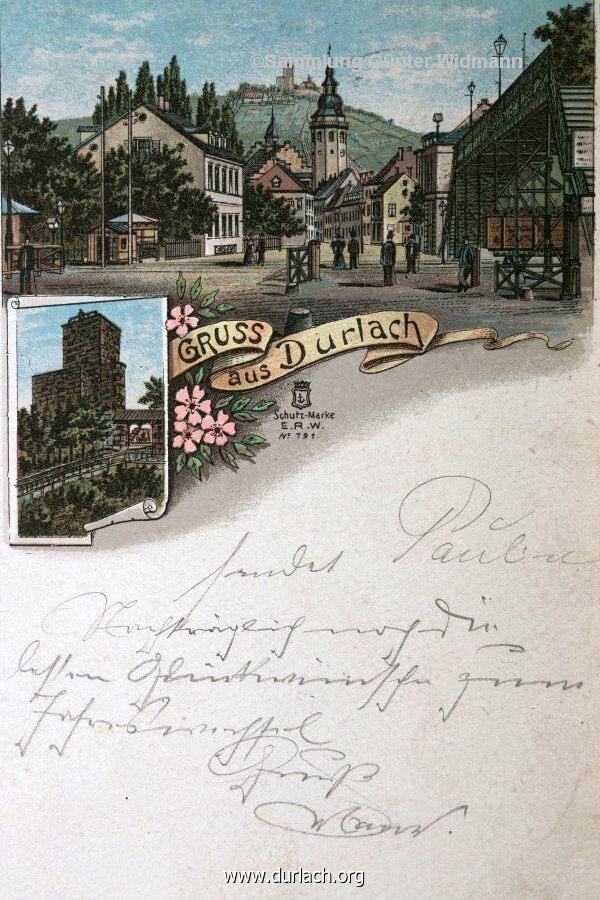 ©Sammlung Günter Widmann
GRUSS
aus Durlach
Schutz-Marke
E. R. W.
No 791.
sendet Paul
Nachträglich noch die
besten Glückwünsche zum
Jahreswechsel
Gruß
www.durlach.org